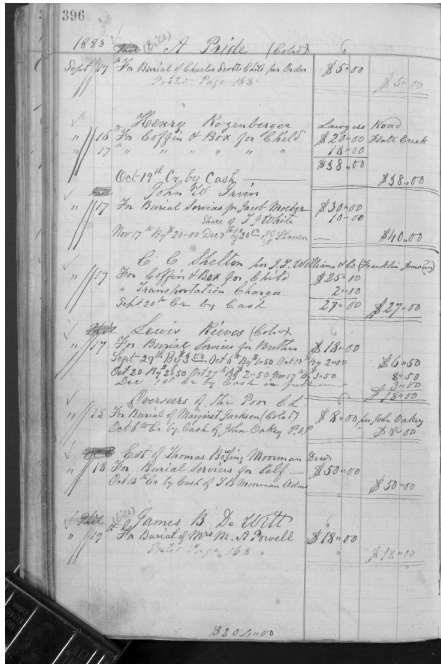 396
1883 A Pride (Cold)
Sept 17 For Burial of Charlie Scotts Child per Order $5.00
Posted Page 163 $5.00
Henry Rozenberger Road
" 16 For Coffin & Box for Child $20.00 Flat Creek
" 17 " " " " " " 18.00
$38.00
Oct 19th Cr. by Cash $38.00
John W Irvin
" 17 For Burial Services for Jacob $30.00
Share of T J White 10.00
Nov 17th By $20.00 Dec 7th by 20.00 $40.00
C C Shelton per J. T. Williams & Co Franklin
" 17 For Coffin & Box for Child $25.00
" Transportation Charges 2.00
Sept 20th Cr by Cash 27.00 $27.00
Lewis Rieves (Cold)
" 17 For Burial Service for Brother $18.00
Sept 29th By $3.00 Oct 6th By 2.50 Oct 13th By 2.00 $6.50
Oct 20 By 2.50 Oct 27th By 2.50 Nov 17th By 3.50
Dec 1st Cr by Cash in full 3.00
$18.00
Overseers of the Poor
" 15 For Burial of Margaret Jackson (Cold) $8.00 per John Oakey
Oct 6th Cr by Cash of John Oakey $8.00
Est of Thomas Moorman Decd
" 18 For Burial Services for Self $50.00
Oct Cr by Cash of Moorman $50.00
James B De Witt
" 19th For Burial of Mrs M. A Powell $18.00
Posted Page 168 $18.00
$204.00